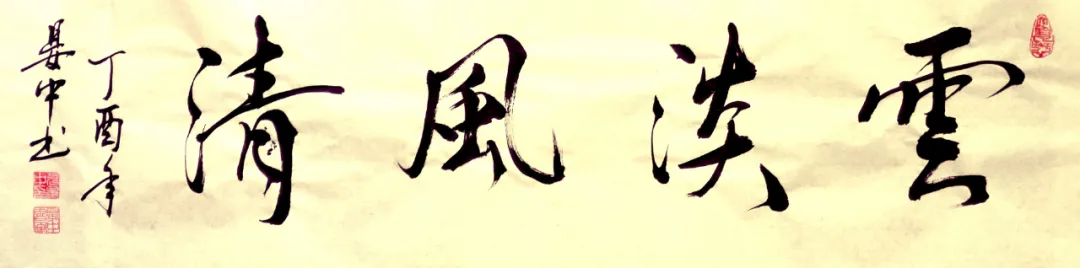 雲淡風清
丁酉年
晏中书